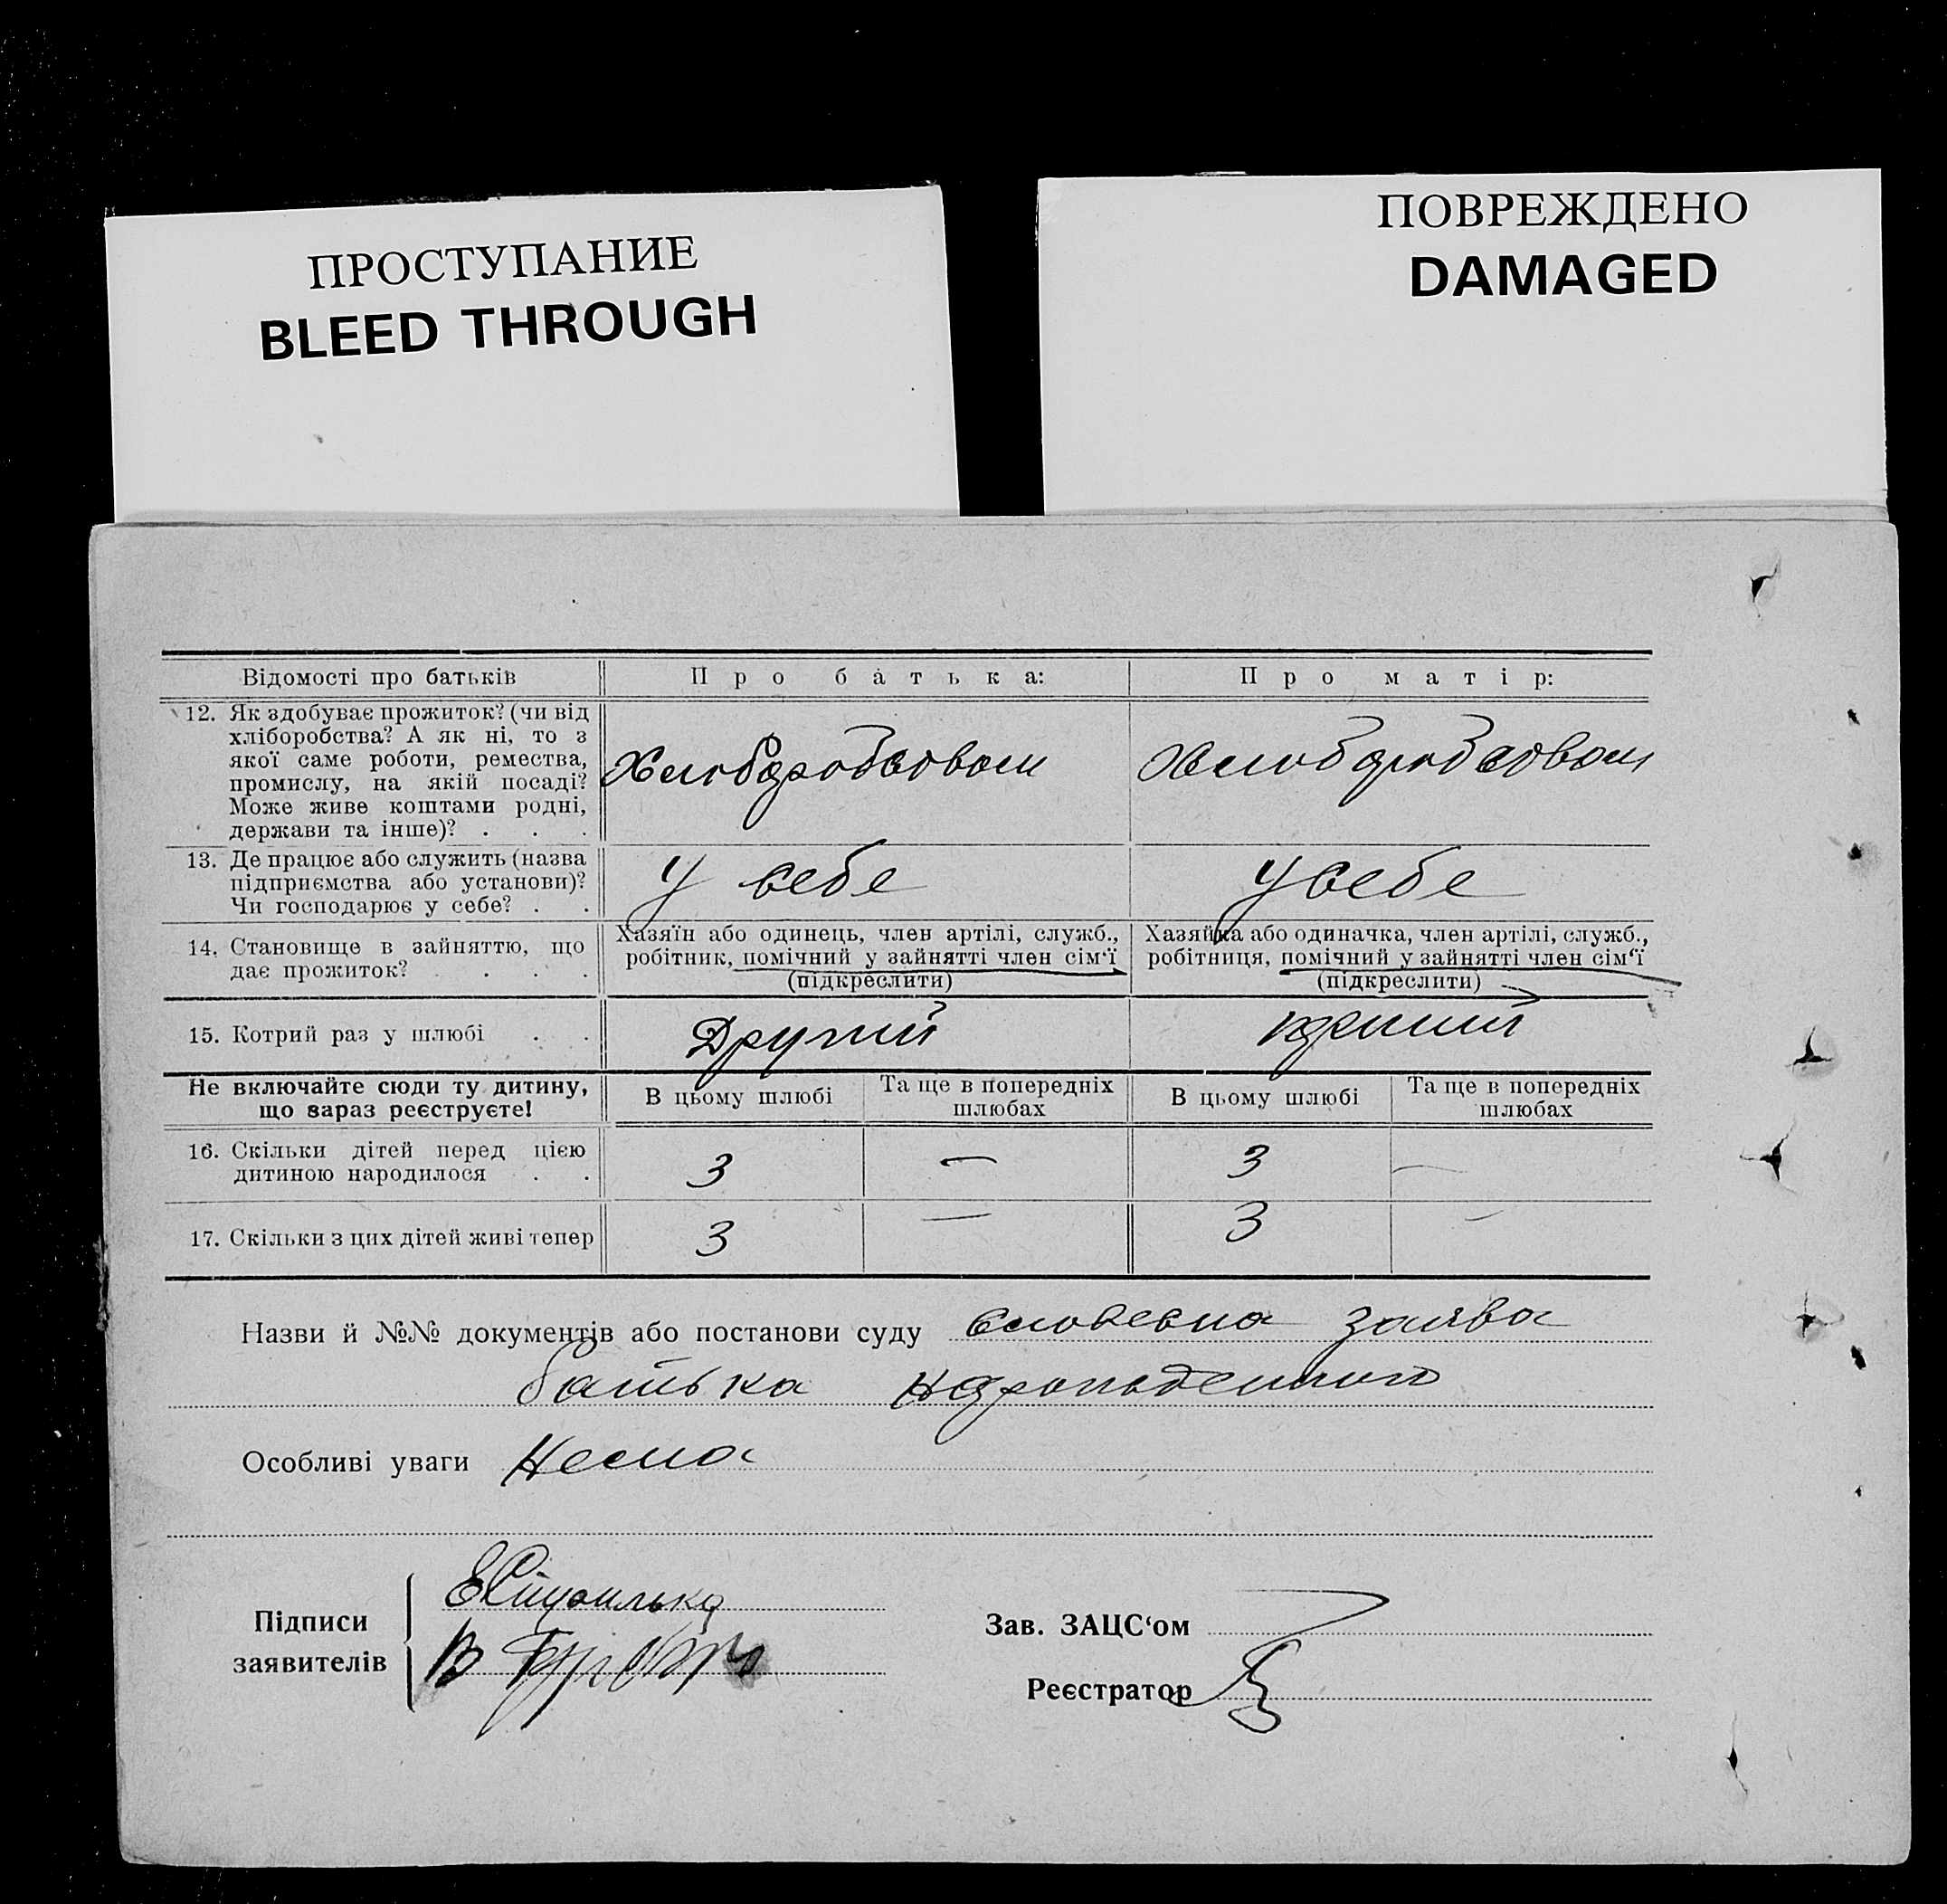 ПРОСТУПАНИЕ
BLEED THROUGH
ПОВРЕЖДЕНО
DAMAGED
Відомості про батьків
Про батька:
Про матір:
12. Як здобуває прожиток? (чи від
хліборобства? А як ні, то з
якої саме роботи, ремества,
промислу, на якій посаді?
Може живе коштами родні,
держави та інше)? . . .
Хлібробством
Хлібробством
13. Де працює або служить (назва
підприємства або установи)?
Чи господарює у себе? . .
У себе
У себе
14. Становище в зайняттю, що
дає прожиток? . . .
Хазяїн або одинець, член артілі, служб.,
робітник, помічний у зайнятті член сім'ї
(підкреслити)
Хазяйка або одиначка, член артілі, служб.,
робітниця, помічний у зайнятті член сім'ї
(підкреслити)
15. Котрий раз у шлюбі . .
Другий
Не включайте сюди ту дитину,
що зараз реєструєте!
В цьому шлюбі
Та ще в попередніх
шлюбах
В цьому шлюбі
Та ще в попередніх
шлюбах
16. Скільки дітей перед цією
дитиною народилося . .
3 — 3 —
17. Скільки з цих дітей живі тепер
3 — 3 —
Назви й №№ документів або постанови суду словесна заява
батька
Особливі уваги Нема
Підписи
заявителів
Зав. ЗАЦС'ом
Реєстратор